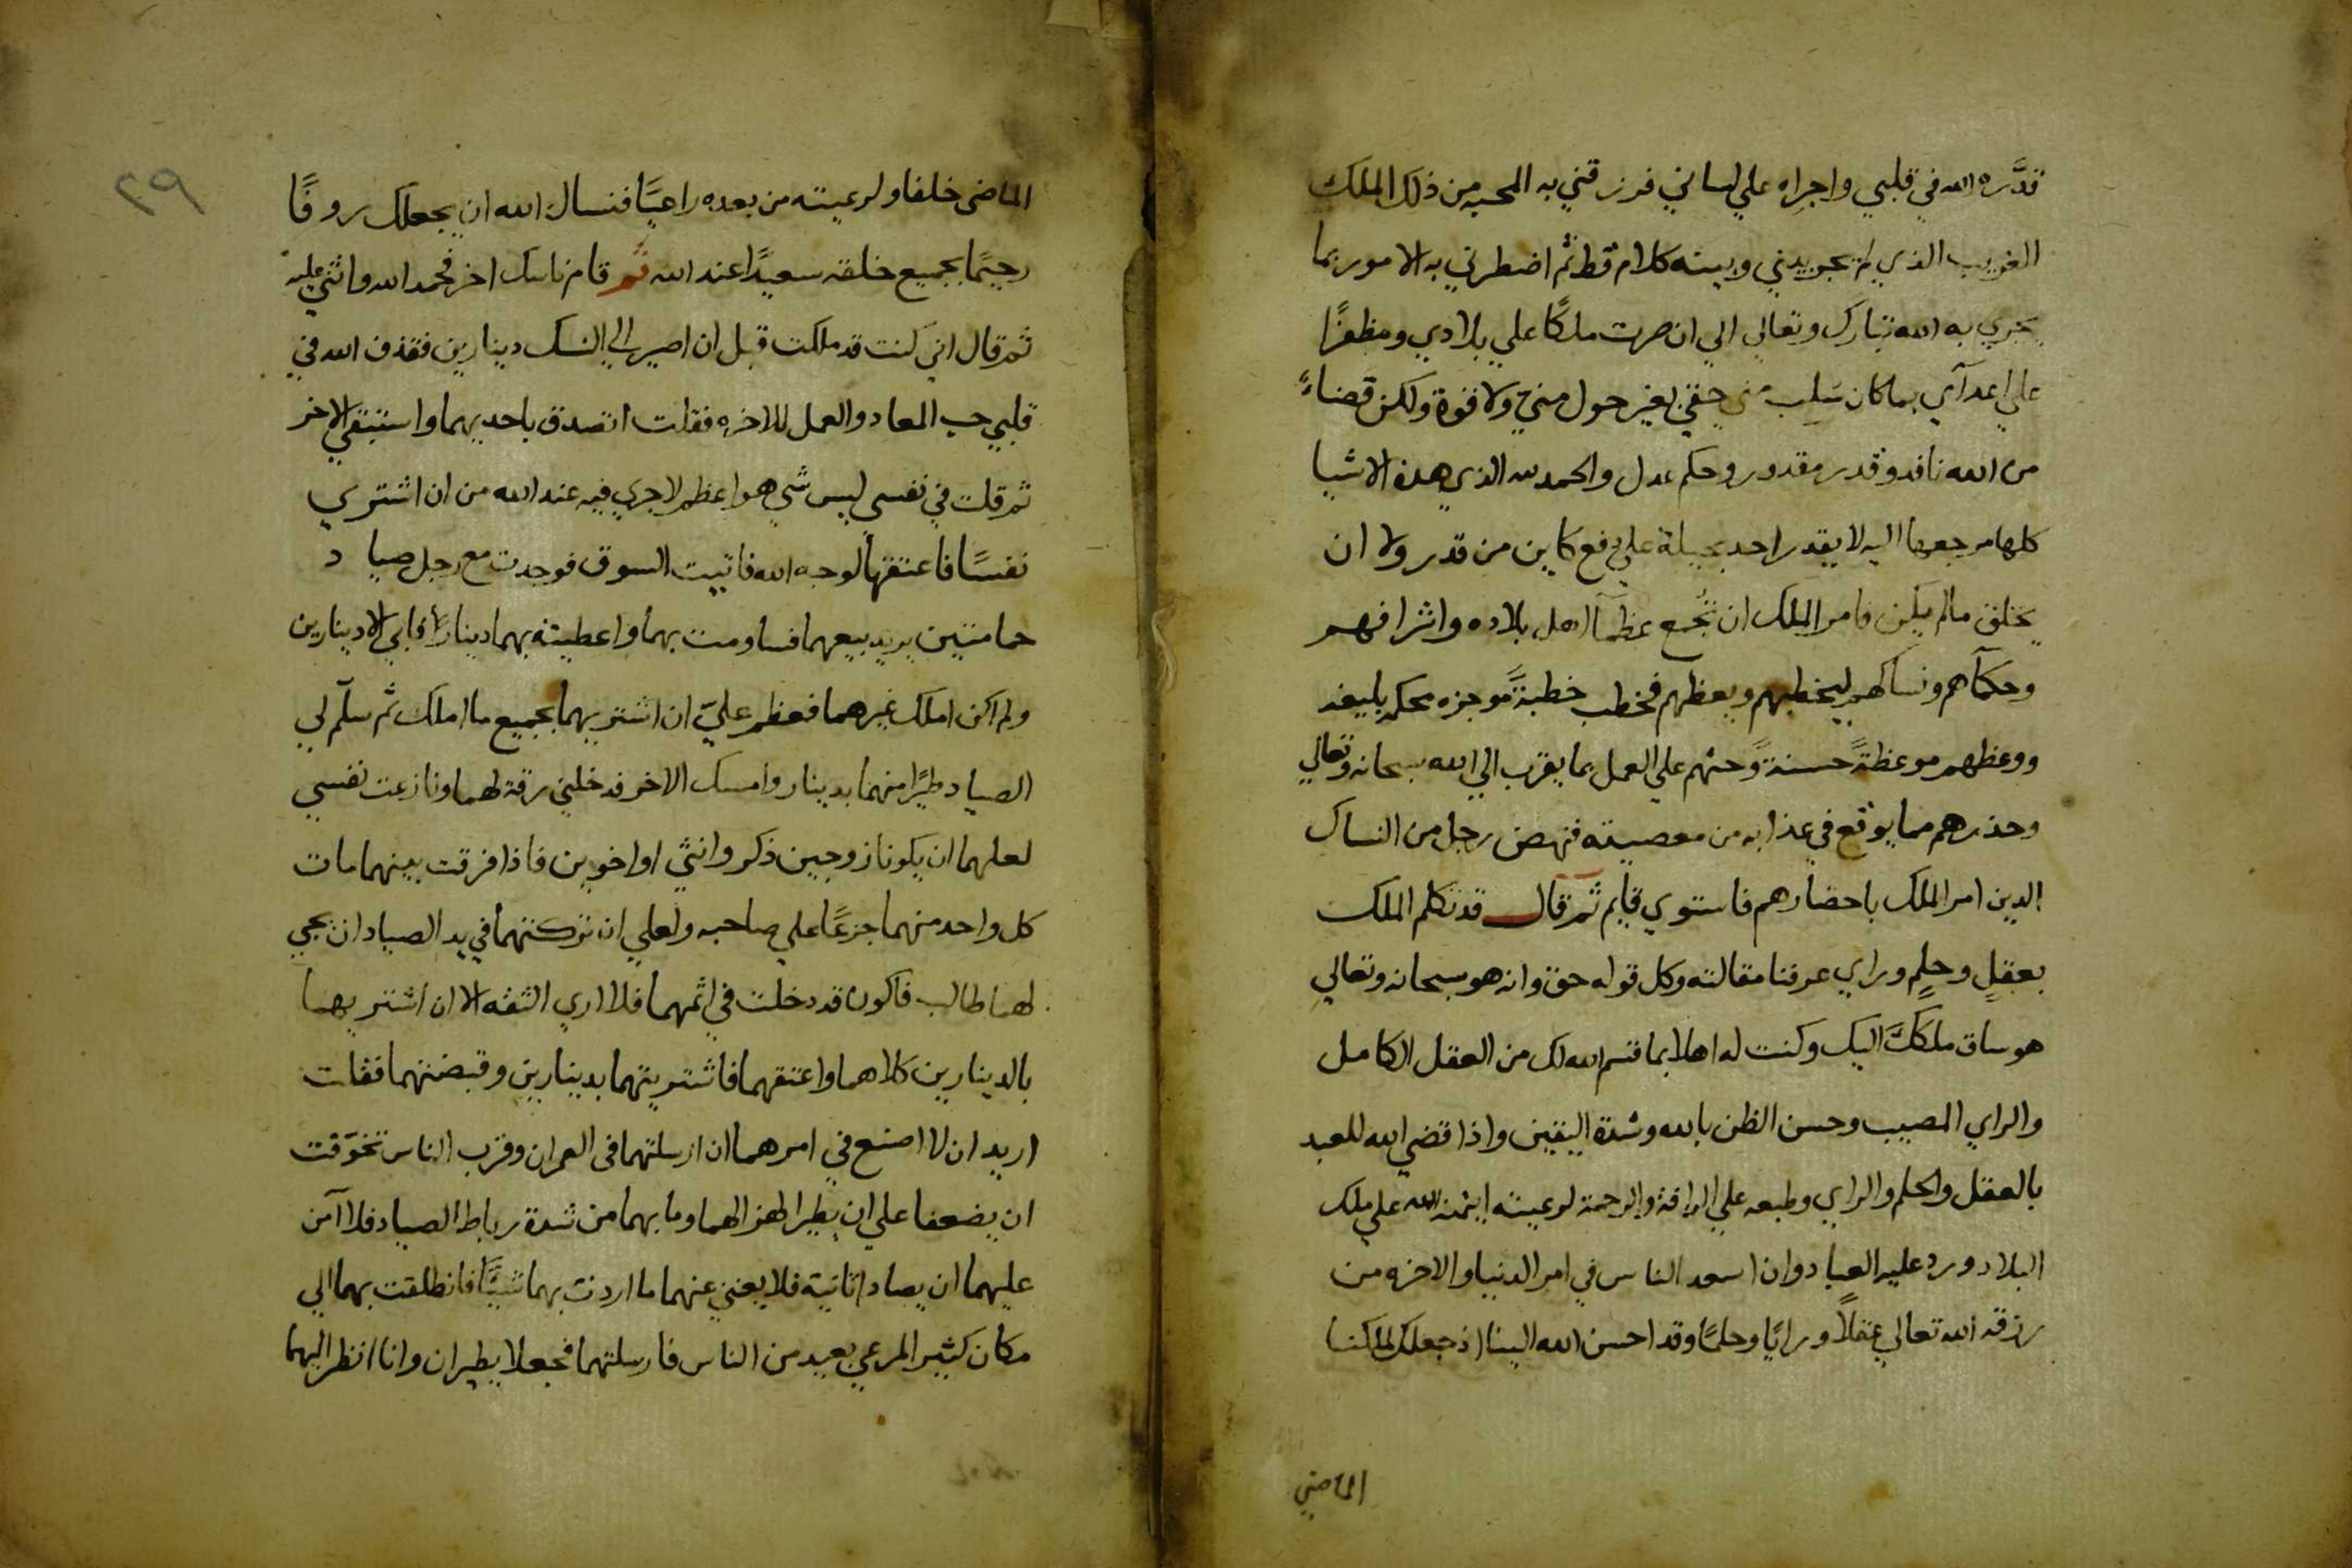 قدَّره الله في قلبي واجراه علي لساني فرزقني به المحبه من ذلك الملك
الغريب الذي لم يجر بيني وبينه كلام قط ثم اضطرني به الامور بما
يجري به الله تبارك وتعالي الي ان صرت ملكًا علي بلادي ومظفرًا
علي اعدآي بما كان سَلِب مني حقي بغير حول مني ولا قوة ولكن قضاءً
من الله نافد وقدر مقدور وحكم عدل والحمد لله الذي هده الاشيا
كلها مرجعها اليه لا يقدر احد بحيلة علي دفع كاين من قدر ولا ان
يخلق مالم يكن فامر الملك ان تُجمع عظمآ اهل بلاده واشرافهم
وحكمآهم ونساكهم ليخطبهم ويعظهم فخطب خطبةً موجزه محكمه بليغه
ووعظهم موعظةً حسنةً وحثهم علي العمل بما يقرب الي الله سبحانه وتعالي
وحذرهم مما يوقع في عذابه من معصيته فنهض رجل من النساك
الدين امر الملك باحضارهم فاستوي قايم ثم قال قد تكلم الملك
بعقلٍ وحلمٍ وراي عرفنا مقالته وكل قوله حق وانه هو سبحانه وتعالي
هو ساق ملككَ اليك وكنت له اهلا بما قسم الله لك من العقل الكامل
والراي المصيب وحسن الظن بالله وشدة اليقين واذا قضي الله للعبد
بالعقل والحلم والراي وطبعه علي الرافة والرحمة لرعيته ايتمنه الله علي ملك
البلاد ورد عليه العباد وان اسعد الناس في امر الدنيا والاخره من
رزقه الله تعالي عقلاً ورايًا وحلمًا وقد احسن الله الينا اذ جعلك لملكنا
الماضي
٢٩
الماضى خلفا ولرعيته من بعده راعيًا فنسال الله ان يجعلك روفًا
رحيمًا بجميع خلقه سعيدًا عند الله ثم قام ناسك اخر فحمد الله واثني عليه
ثم قال اني كنت قد ملكت قبل ان اصير الي النسك دينارين فقذف الله في
قلبي حب المعاد والعمل للاخره فقلت اتصدق باحديهما واستبقي الاخر
ثم قلت في نفسي ليس شي هو اعظم لاجري فيه عند الله من ان اشتري
نفسًا فاعتقها لوجه الله فاتيت السوق فوجدت مع رجل صياد
حمامتين يريد بيعهما فساومت بهما واعطيته بهما دينارًا فابي الا دينارين
ولم اكن املك غيرهما فعظم عليّ ان اشتريهما بجميع ما املك ثم سلّم لي
الصياد طيرًا منهما بدينار وامسك الاخر فدخلني رقة لهما ونازعت نفسي
لعلهما ان يكونا زوجين ذكر وانثي او اخوين فاذا فرقت بينهما مات
كل واحد منهما جزعًا علي صاحبه ولعلي ان تركتهما في يد الصياد ان يجي
لهما طالب فاكون قد دخلت في اثمهما فلا اري الثقه الا ان اشتريهما
بالدينارين كلاهما واعتقهما فاشتريتهما بدينارين وقبضتهما فقلت
اريد ان لا اصنع في امرهما ان ارسلتهما فى العمران وقرب الناس تخوّفت
ان يضعفا علي ان يطيرا لهزالهما وما بهما من شدة رباط الصياد فلا آمن
عليهما ان يصادا ثانية فلا يغني عنهما ما اردت بهما شيًّا فانطلقت بهما الي
مكان كثير المرعي بعيد من الناس فارسلتهما فجعلا يطيران وانا انظر اليهما